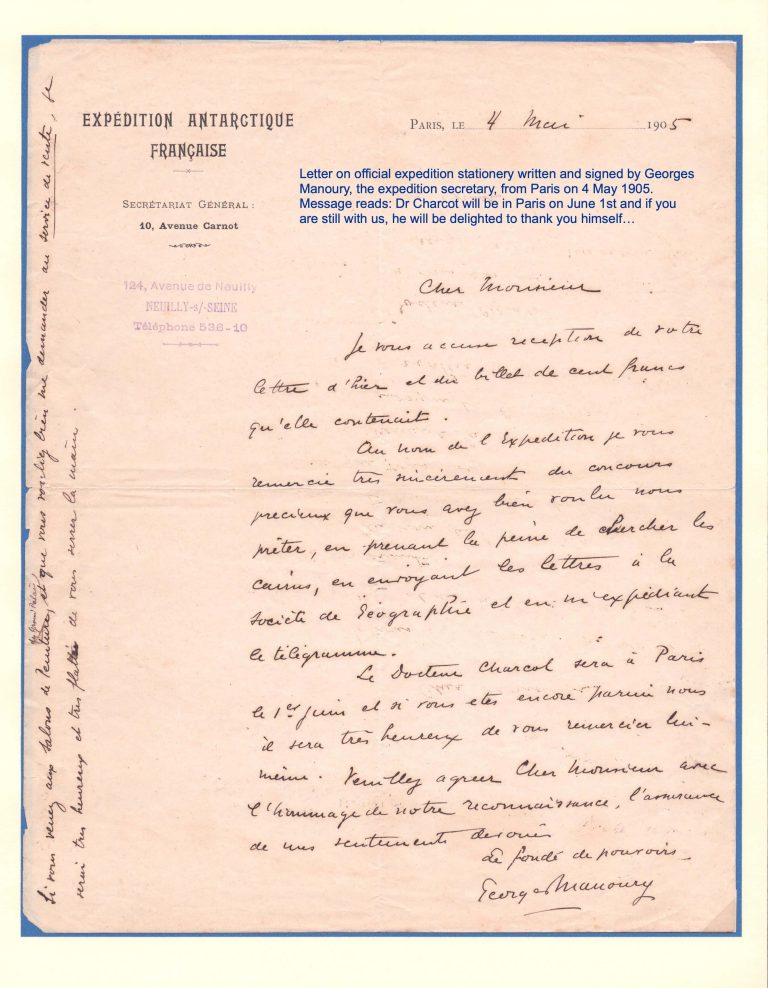 EXPÉDITION ANTARCTIQUE
FRANÇAISE
SECRÉTARIAT GÉNÉRAL :
10, Avenue Carnot
124, Avenue de Neuilly
NEUILLY-s/-SEINE
Téléphone 536-10
PARIS, LE 4 Mai 1905
Letter on official expedition stationery written and signed by Georges
Manoury, the expedition secretary, from Paris on 4 May 1905.
Message reads: Dr Charcot will be in Paris on June 1st and if you
are still with us, he will be delighted to thank you himself…
Cher Monsieur
Je vous accuse reception de votre
lettre d'hier et du billet de cent francs
qu'elle contenait.
Au nom de l'Expedition je vous
remercie très sincèrement du concours
precieux que vous avez bien voulu nous
prêter, en prenant la peine de chercher les
cairns, en envoyant les lettres à la
Société de Géographie et en m'expédiant
le télégramme.
Le Docteur Charcot sera à Paris
le 1er Juin et si vous etes encore parmi nous
il sera très heureux de vous remercier lui-
même. Veuillez agreer Cher Monsieur avec
l'hommage de notre reconnaissance, l'assurance
de mes sentiments devoués
Le fondé de pouvoirs
Georges Manoury
Si vous venez aux Salons de Peinture, et que vous vouliez bien me demander au service de vente, je
du Grand Palais
serai très heureux et très flatté de vous serrer la main.